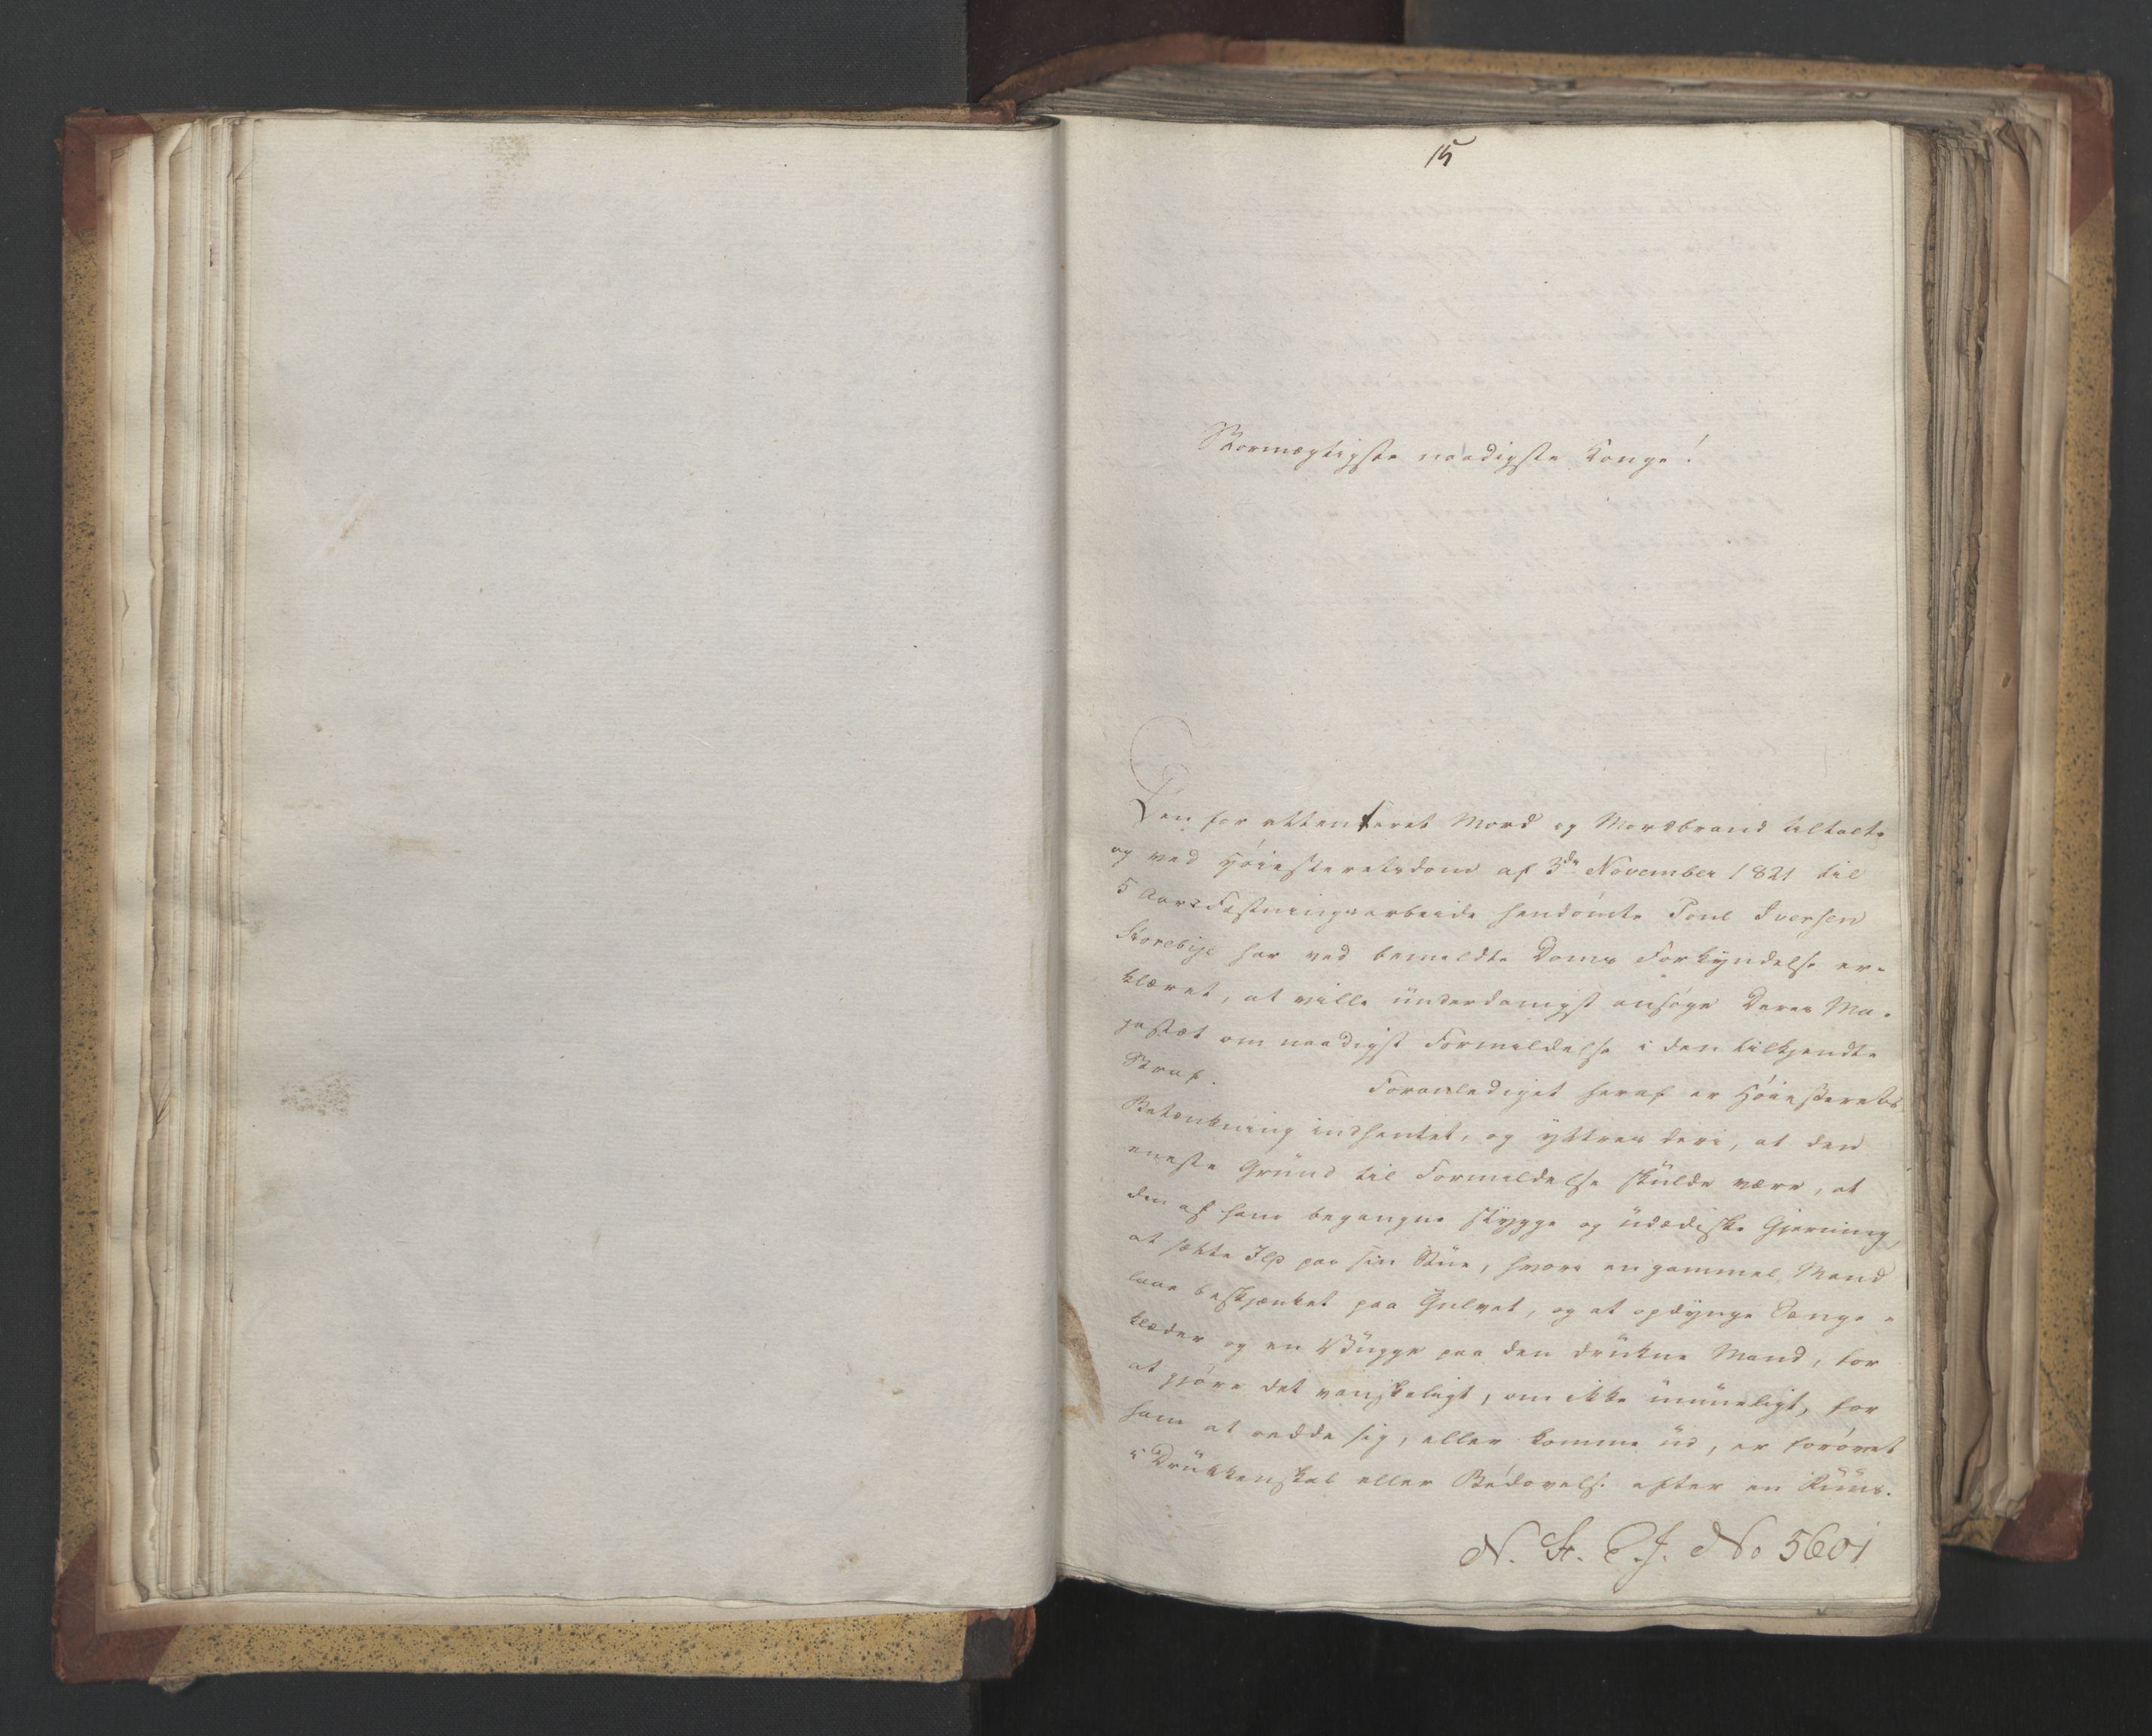 15
Stormægtigste naadigste Konge!
Den for attenteret Mord og Mordbrand tiltalte
og ved Høiesteretsdom af 3die November 1821 til
5 Aars Fæstningsarbeide hendømte Poul Iversen
Storebye har ved bemeldte Doms Forkyndelse er-
klæret, at ville ünderdanigst ansøge Deres Ma-
jestæt om naadigst Formildelse i den tilkjendte
Straf.
Foranlediget heraf er Høiesterets
Betænkning indhentet, og yttres deri, at den
eneste Gründ til Formildelse skülde være, at
den af ham begangne stygge og üdædiske Gjerning,
at sætte Ild paa sin Stüe, hvori en gammel Mand
laae beskjænket paa Gulvet, og at opdynge Senge-
klæder og en Vügge paa den drükne Mand, for
at gjøre det vanskeligt, om ikke ümüeligt, for
ham at redde sig, eller komme üd, er forøvet
i Drükkenskab eller Bedøvelse efter en Rüüs.
N. St. E. J. No 5601